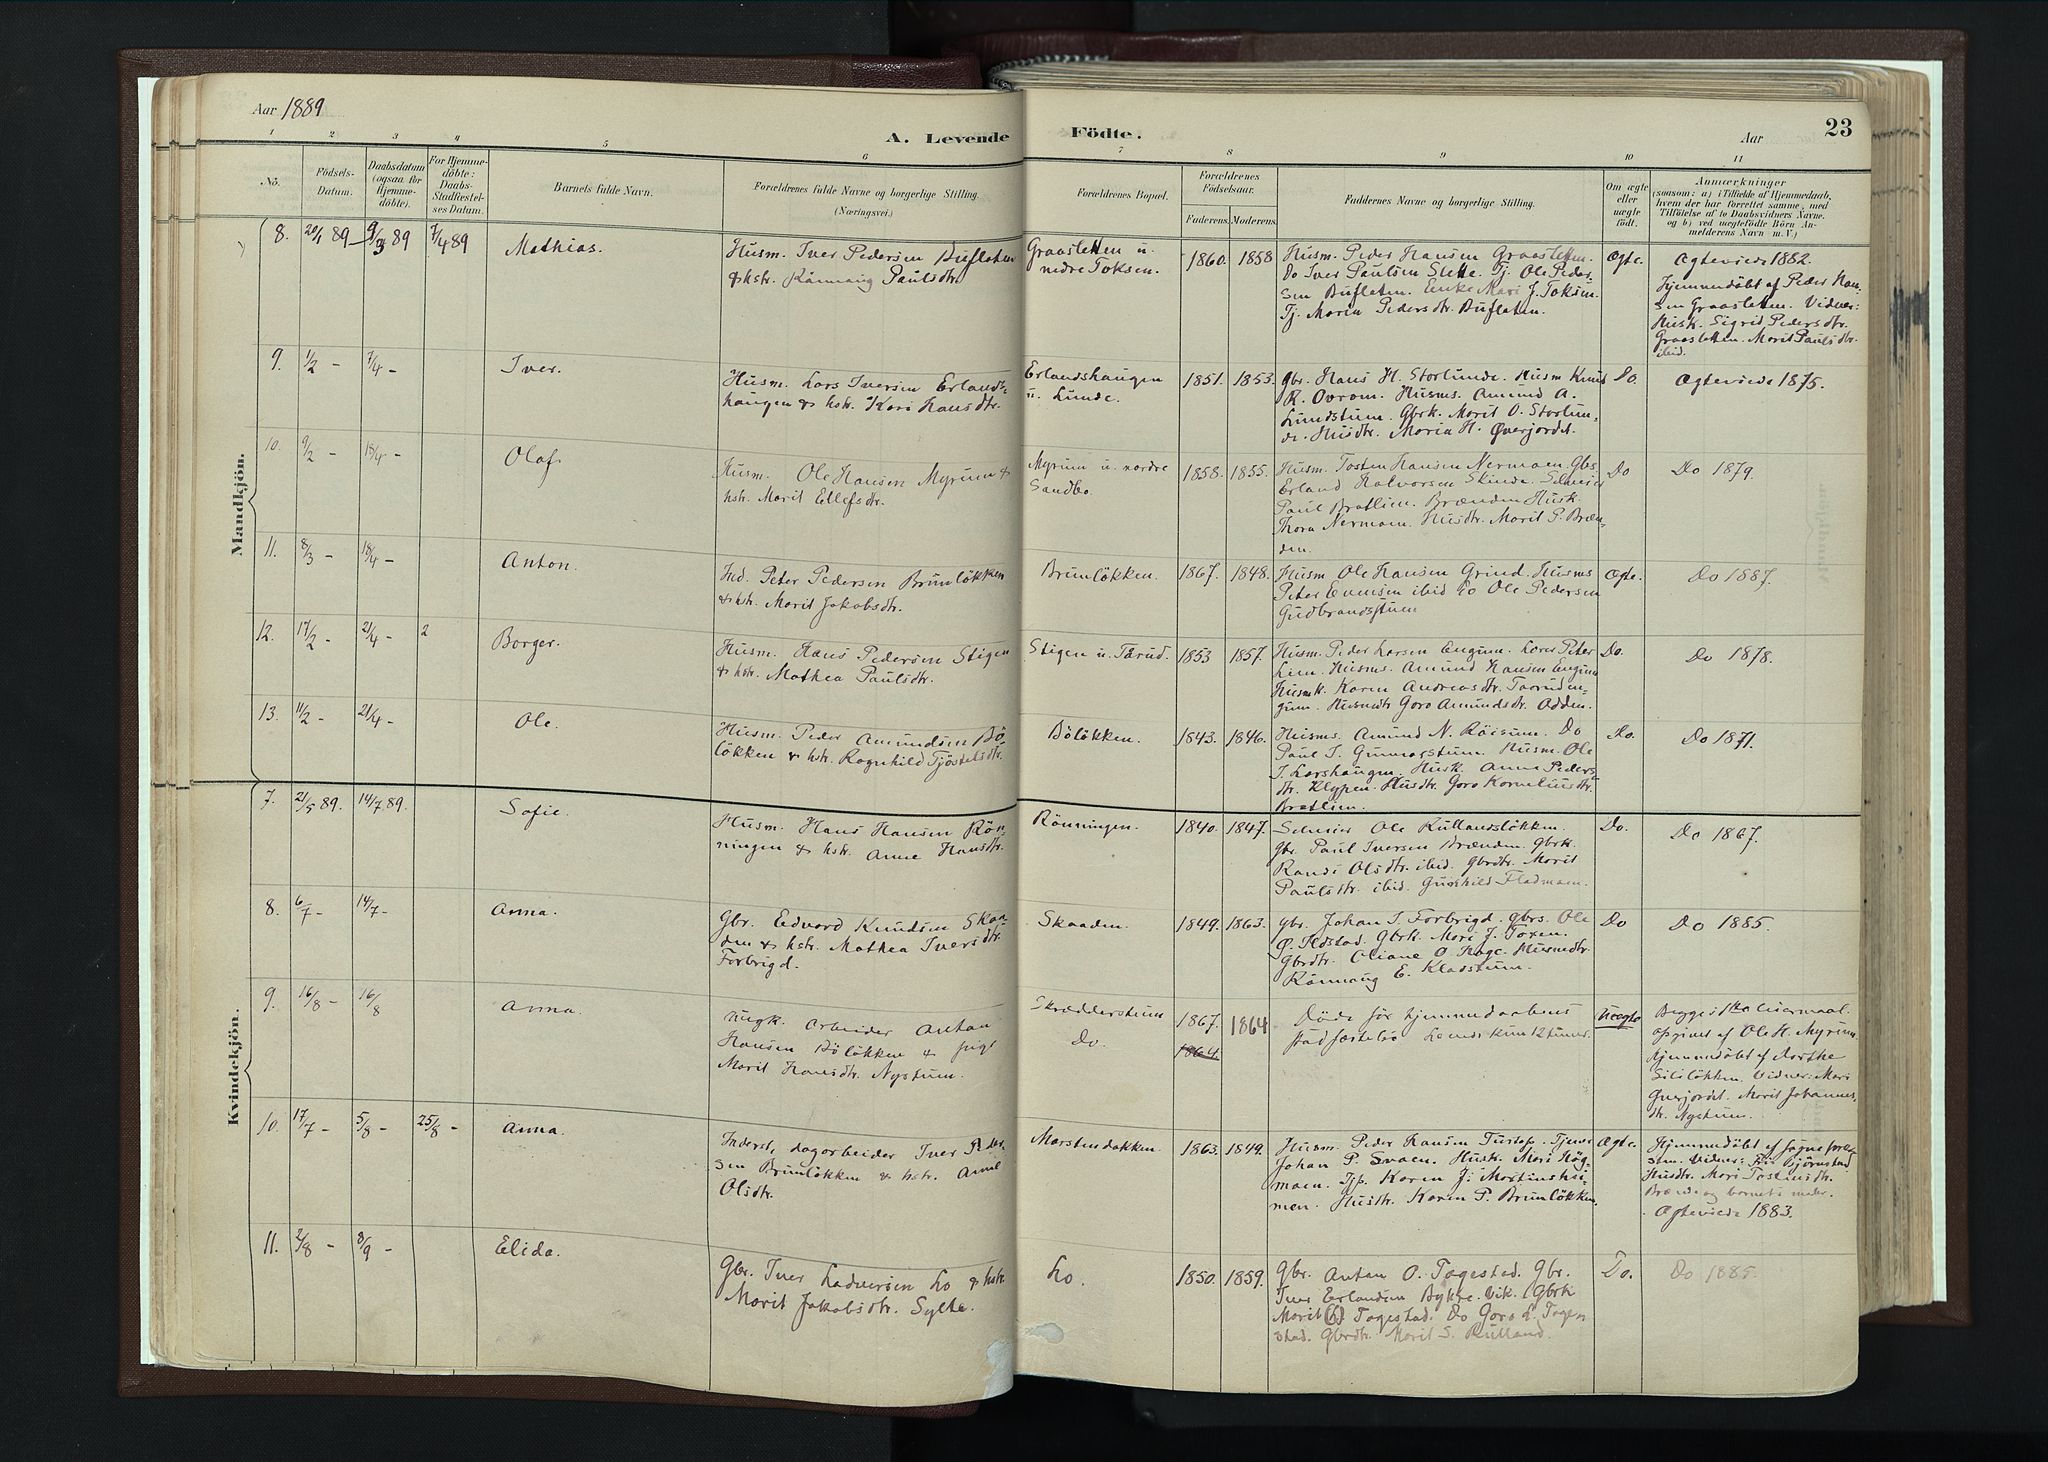 Aar 1889
A. Levende Födte.
Aar
23
1 2 3 4 5 6 7 8 9 10 11
No.
Födsels-
Datum.
Daabsdatum
(ogsaa for
Hjemme-
döbte).
For Hjemme-
döbte:
Daabs-
Stadfæstel-
ses Datum.
Barnets fulde Navn.
Forældrenes fulde Navne og borgerlige Stilling.
(Næringsvei.)
Forældrenes Bopæl.
Forældrenes
Födselsaar.
Faderens. Moderens.
Faddernes Navne og borgerlige Stilling.
Om ægte
eller
uægte
födt.
Anmærkninger
(saasom: a) i Tilfælde af Hjemmedaab,
hvem der har forrettet samme, med
Tilföielse af to Daabsvidners Navne,
og b) ved uægtefödte Börn An-
melderens Navn m. V.)
Mandkjön.
8. 20/1 89 9/3 89 7/4 89 Mathias.
Husm. Iver Pedersen Buflaten
& hstr. Rönnaug Paulsdtr.
Graasletten u.
nedre Toksen.
1860. 1858
Husm. Peder Hansen Graasletten.
Do Iver Paulsen Slette. Tj. Ole Peder-
sen Buflaten. Enke Mari J. Toksen.
Tj. Maria Pedersdtr. Buflaten.
Ægte.
Ægteviede 1882.
Hjemmedöbt af Peder Han-
sen Graasletten. Vidner:
Husk. Sigrid Pedersdtr.
Graasletten. Marit Paulsdtr.
ibid.
9. 1/2 - 7/4 - Iver.
Husm. Lars Iversen Erlands-
haugen & hstr. Kari Hansdtr.
Erlandshaugen
u. Lunde.
1851. 1853.
Gbr. Hans H. Storlunde. Husm Knud
R. Ovrom. Husms. Amund A.
Lundstum. Gbrk. Marit O. Storlun-
de. Husdtr. Maria H. Överjordet.
Do.
Ægteviede 1875.
10. 9/2 - 18/4 - Olaf.
Husm. Ole Hansen Myrum &
hstr. Marit Ellefsdtr.
Myrum u. nordre
Sandbo.
1858. 1855.
Husm. Tosten Hansen Nermoen. Gbs.
Erland Halvorsen Skinde.
Paul Bratlien. Brænden Husk.
Thora Nermoen. Husdtr. Marit P. Bræn-
den.
Do
Do 1879.
11. 8/3 - 18/4 - Anton.
Ind. Peter Pedersen Brunlökken
& hstr. Marit Jakobsdtr.
Brunlökken.
1867. 1848.
Husm Ole Hansen Grind. Husms
Peter Evensen ibid Do Ole Pedersen
Gudbrandstuen
Ægte.
Do 1887.
12. 17/2 - 21/4 - 2 Borger.
Husm. Hans Pedersen Stigen
& hstr. Mathea Paulsdtr.
Stigen u. Tårud.
1853 1857.
Husm. Peder Larsen Engum. Peter
Lien. Husms. Amund Hansen Engum
Husmk. Karen Andreasdtr. Taaruden-
gum. Husmdtr Goro Amundsdtr. Odden.
Do.
Do 1878.
13. 11/2 - 21/4 - Ole.
Husm. Peder Amundsen Bö-
lökken & hstr. Ragnhild Tjöstelsdtr.
Bölökken.
1843. 1846.
Husms. Amund N. Röisum. Do
Paul T. Gunnarstum. Husm. Ole
T. Larshaugen. Husk. Anne Peders-
dtr. Klypen. Husdtr. Goro Korneliusdtr.
Bratlien.
Do.
Do 1871.
Kvindekjön.
7. 21/5 89. 14/7 89. Sofie.
Husm. Hans Hansen Rön-
ningen & hstr. Anne Hansdtr.
Rönningen.
1840. 1847.
Ole Rullandslökken.
Gbr. Paul Iversen Brænden. Gbrk.
Randi Olsdtr. ibid. Gbrdtr. Marit
Paulsdtr. ibid. Gunhild Fladmoen.
Do.
Do 1867.
8. 6/7 - 14/7 - Anna.
Gbr. Edvard Knudsen Skaa-
den & hstr. Mathea Iversdtr.
Forbrigd.
Skaaden.
1849. 1863.
Gbr. Johan I. Forbrigd. Gbrs. Ole
Gbrk. Mari J. Toxen.
Gbrdtr. Oliane O. Hage. Husmdtr.
Rönnaug E. Kladstum.
Do
Do 1885.
9. 16/8 - 16/8 Anna.
Ungk. arbeider Anton
Hansen Bölökken & pige
Marit Hansdtr. Nystuen.
Skrædderstuen
Do.
1867. 1864
1864.
Döde för hjemmedaabens
stadfæstelse Levede kun 12 timer.
Uægte
Begges 1ste leiermaal.
Opgivet af Ole H. Myrum.
Hjemmedöbt af Dorthe
Sililökken. Vidner: Mari
Överjordet. Marit Johannes-
dtr. Nystuen.
10. 17/7 - 5/8 - 25/8 - Anna.
Inderst, dagarbeider Iver Peder-
sen Brunlökken & hstr. Anne
Olsdtr.
Marstendokken.
1863. 1849.
Husm. Peder Hansen Tjener
Johan P. Svaen. Hustr. Mari Hög-
moen. Tjp. Karen J. Martinshu-
men. Husdtr. Karen P. Brunlökken.
Ægte.
Hjemmedöbt af sognepræ-
sten. Vidner: Fru Björnstad
Husdtr. Mari Tostensdtr.
Brænden og barnets moder.
Ægteviede 1883.
11. 2/8 - 8/9 - Elida.
Gbr. Iver Ladversen Lo & hstr.
Marit Jakobsdtr. Sylte.
Lo.
1850. 1859.
Gbr. Anton O. Tagestad. Gbr.
Iver Erlandsen Bykre. Vik. Gbrk
Marit Tagestad. Do Goro L. Tage-
stad. Gbrdtr. Marit S. Rulland.
Do.
Do 1885.